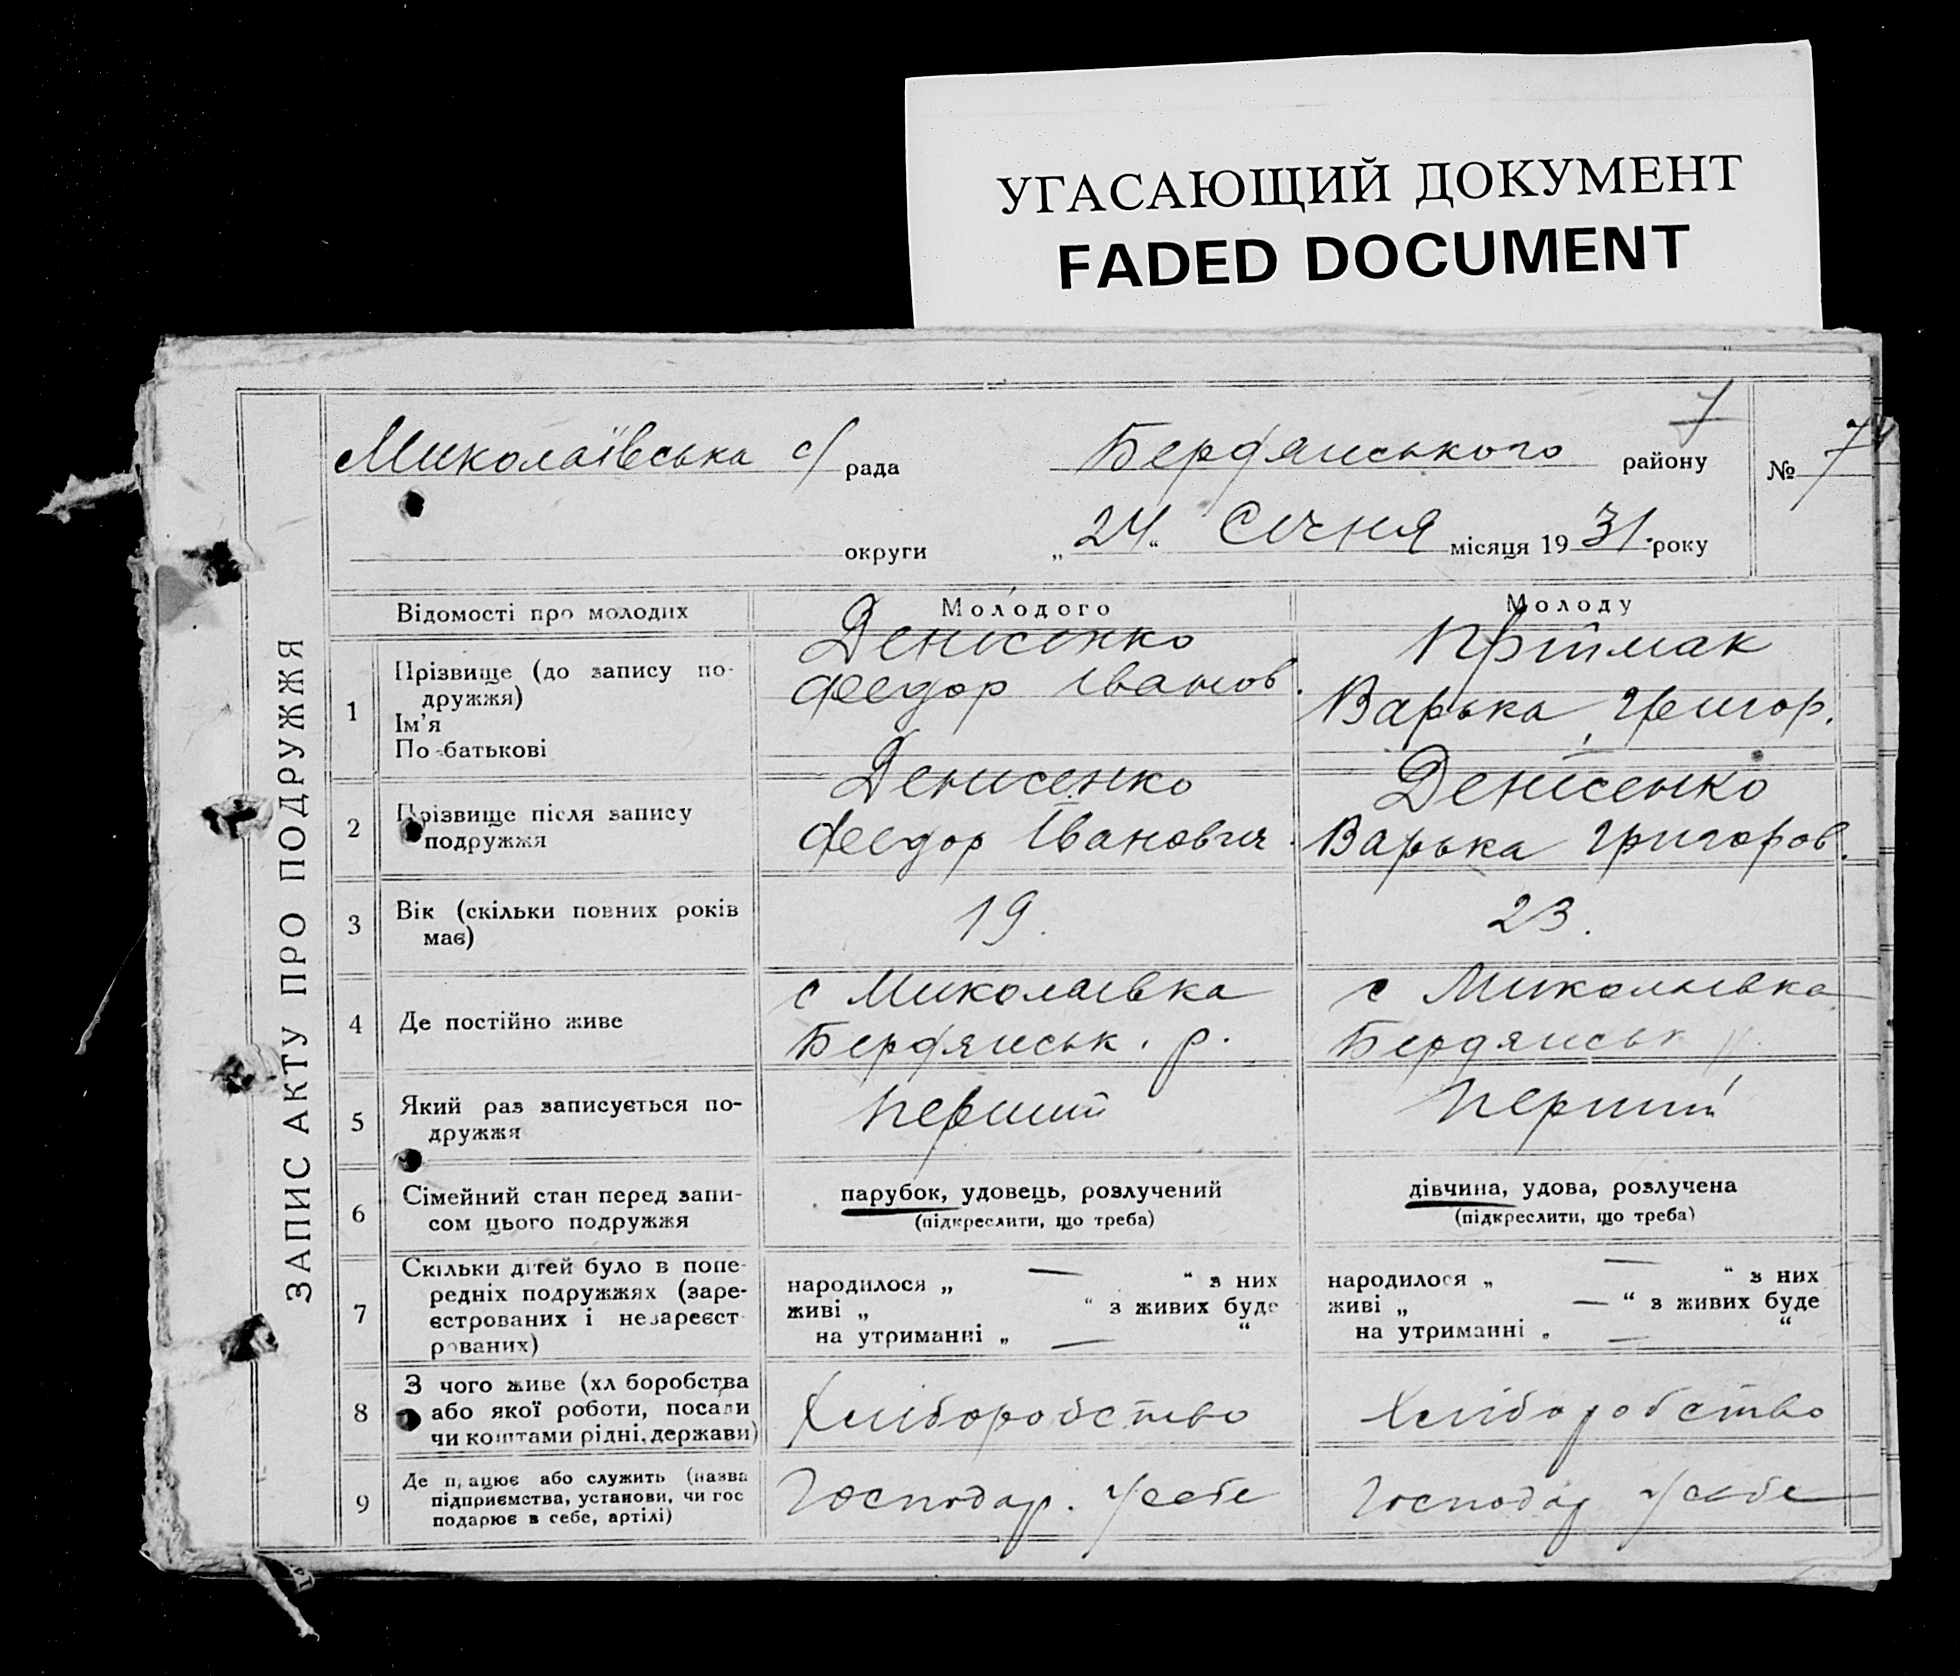 УГАСАЮЩИЙ ДОКУМЕНТ
FADED DOCUMENT
ЗАПИС АКТУ ПРО ПОДРУЖЖЯ
7
Миколаївська с/рада Бердянського району № 7
округи „24“ Січня місяця 1931. року
Відомості про молодих Молодого Молоду
1 Прізвище (до запису по-
дружжя)
Ім'я
По-батькові
Денисенко
Феодор Іванов.
Приймак
Варька Григор.
2 Прізвище після запису
подружжя
Денисенко
Феодор Іванович.
Денисенко
Варька Григоров.
3 Вік (скільки повних років
має)
19.
23.
4 Де постійно живе
с Миколаівка
Бердянськ. р.
с Миколаівка
Бердянськ р.
5 Який раз записується по-
дружжя
перший
перший
6 Сімейний стан перед запи-
сом цього подружжя
парубок, удовець, розлучений
(підкреслити, що треба)
дівчина, удова, розлучена
(підкреслити, що треба)
7 Скільки дітей було в попе-
редніх подружжях (заре-
єстрованих і незареєст
рованих)
народилося „ — “ з них
живі „ “ з живих буде
на утриманні „ — “
народилося „ — “ з них
живі „ — “ з живих буде
на утриманні „ — “
8 З чого живе (хл боробства
або якої роботи, посади
чи коштами рідні, держави)
Хліборобство
Хліборобство
9 Де працює або служить (назва
підприємства, установи, чи гос
подарює в себе, артілі)
Господар. у себе
Господар у себе